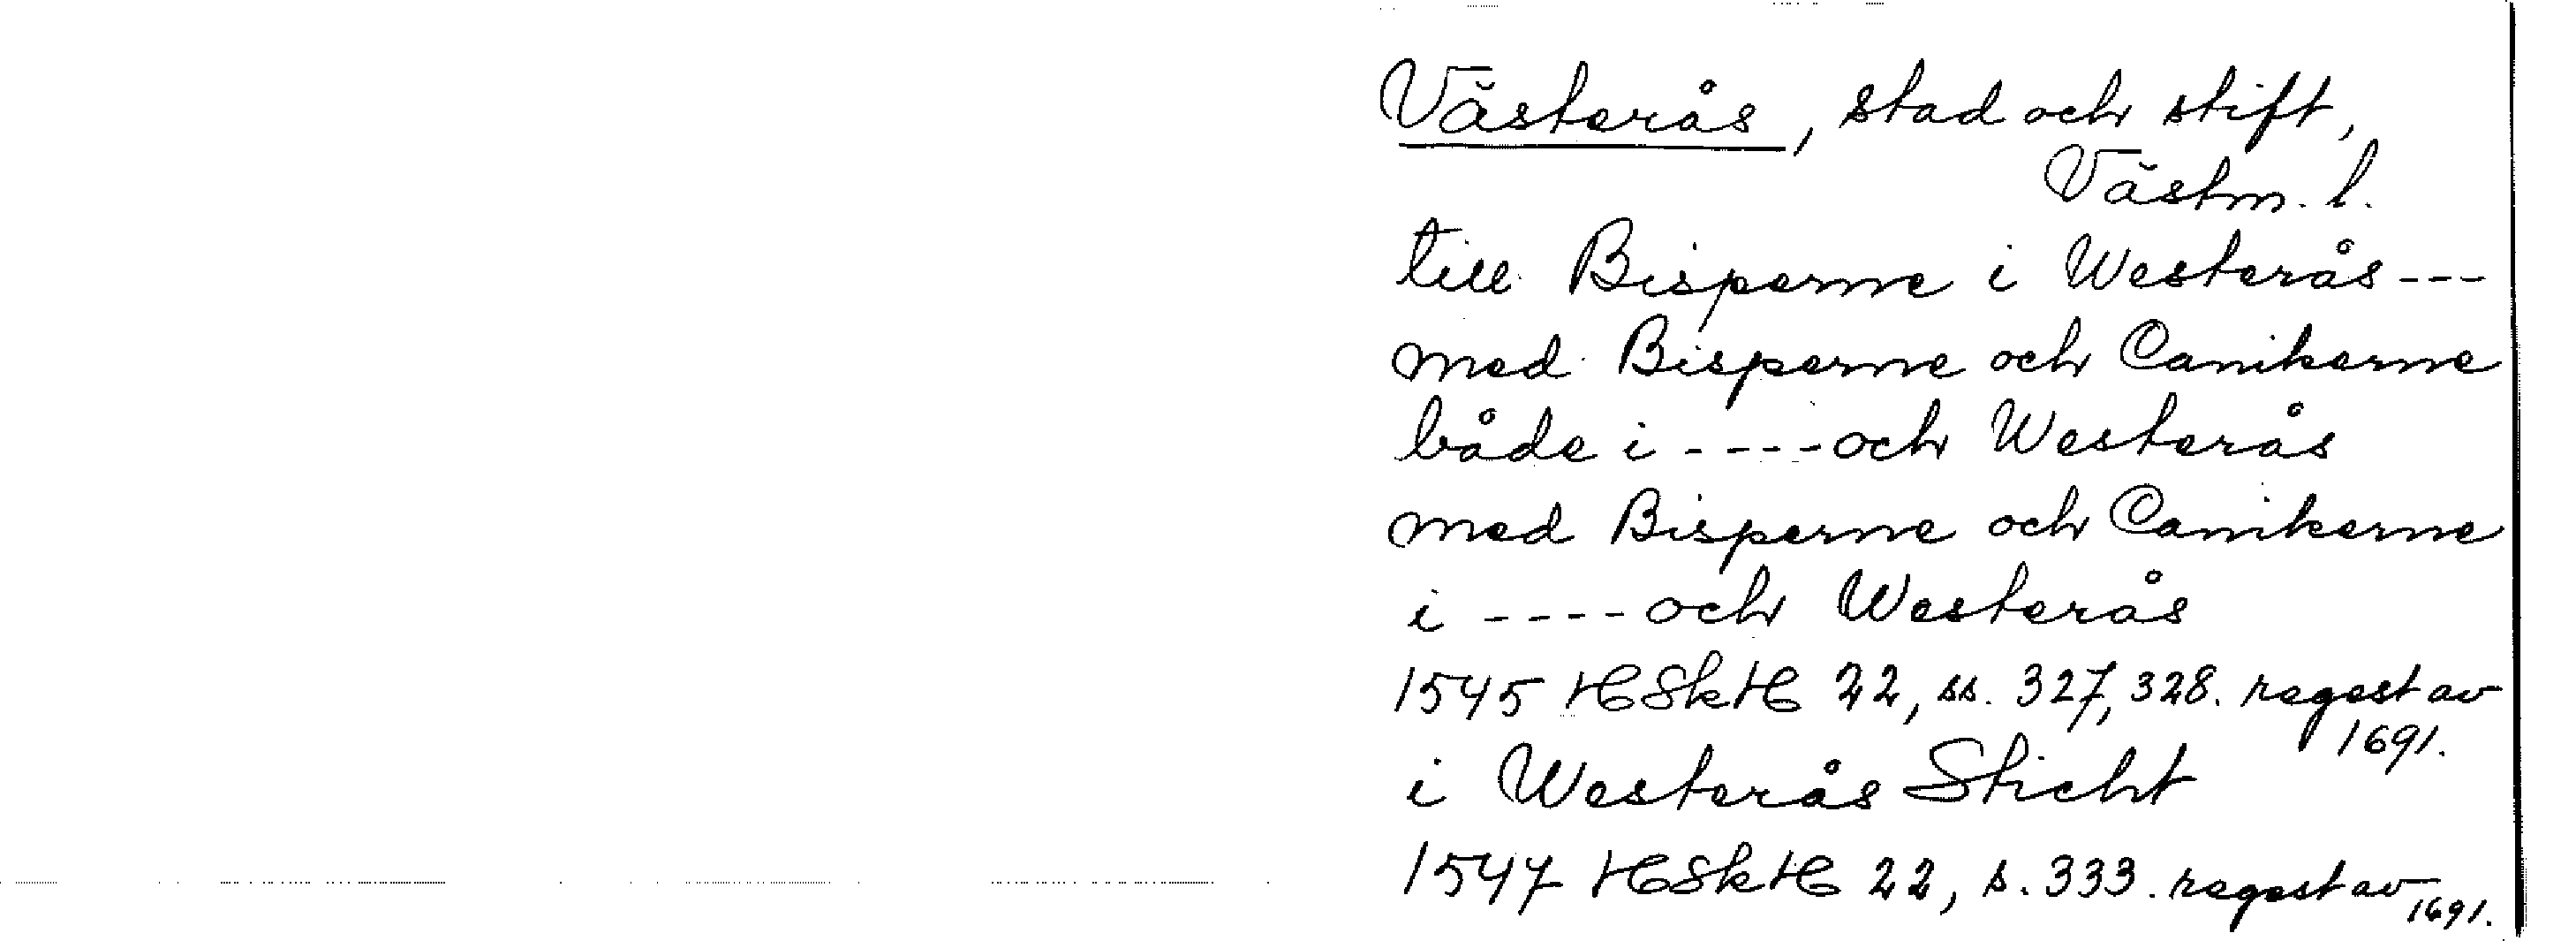 Västerås, stad och stift,
Västm. l.
till Bisperne i Westerås ---
med Bisperne och Canikerne
både i ---- och Westerås
med Bisperne och Canikerne
i ---- och Westerås
1545 HSkH 22, ss. 327, 328. regest av
1691.
i Westerås Sticht
1547 HSkH 22, s. 333. regest av
1691.